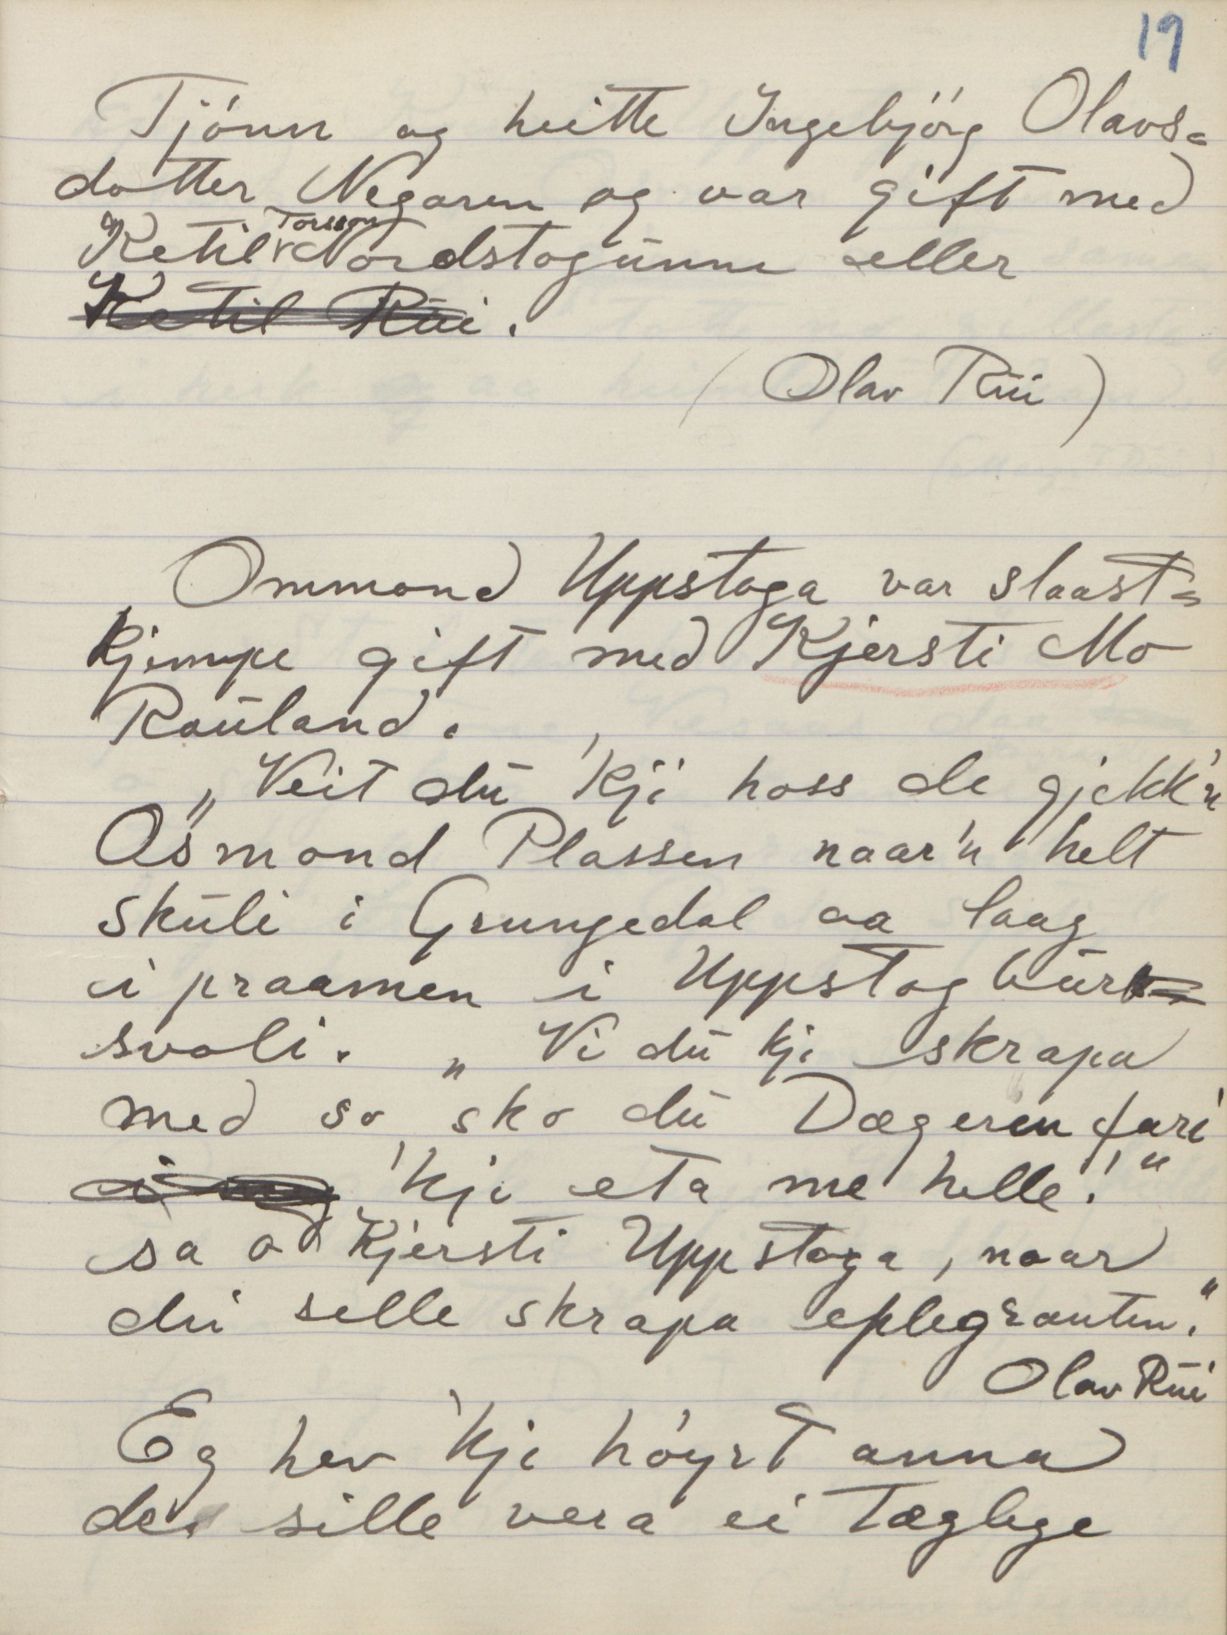 19
Tjónn og heitte Ingebjörg Olavs=
dotter Negaren og var gift med
Ketil Torsson Nordstogunne eller
Ketil Rui.
(Olav Rui)
Ommond Uppstoga var slaast=
kjempe gift med Kjersti Mo
Rauland.
„Veit du 'kji hoss de gjekk'n
Osmond Plassen naar'n helt
skuli i Grungedal aa laag
i praamen i Uppstogbur
svoli. „Vi du kji skrapa
med so sko du Dægeren fari
'kji eta me helle!"
sa o Kjersti Uppstoga, naar
du selle skrapa eplegrauten."
Olav Rui
Eg hev 'kji höyrt anna
de sille vera ei tæglege